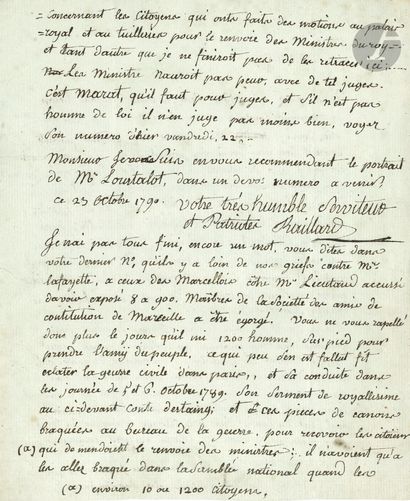 Concernant les Citoyens qui onts faits des motions au palais
royal et au tuilleries pour le renvoie des Ministres du roy=
et tant dautre que je ne finiroit pas de les retracer ici.....
= Les Ministre nauroit pas peur, avec de tel juges.
C'est Marat, qu'il faut pour juges, et s'il n'est pas
homme de loi il n'en juge pas moins bien, voyer
Son numero d'hier vendredi, 22.
Monsieur Je suis en vous recommendant le portrait
de Mr Loustalot, dans un de vos numero a venir
ce 23 octobre 1790. votre très humble Serviteur
et Patriotes Chaillard
Je nai pas tous fini, encore un mot, vous dites dans
votre dernier No, quils y a loin de nos griefs contre Mr
lafayette, a ceux des Marcellois côtre Mr Lieutaud accussé
davoir exposé 8 a 900. Mambres de la Societté des amis de
contitution de Marceille a être égorgé. Vous ne vous rappellé
donc plus le jours qu'il mi 1200 homme, sur pied pour
prendre l'amy du peuple, a que peu s'en est fallut fit
éclater la guerre civile dans paris,, et sa conduite dans
les journée de 5 et 6. octobre 1789. Son Serment de royallisme
au ci-devant conte dertaing; et ces pieces de canons
braquées au bureau de la guerre. pour recevoir les citoiens
(a) qui demendoient le renvoie des ministres:. il n'avoient qu'a
les aller braque dans lasamblé national quand les
(a) environ 10 ou 1200 Citoyens,